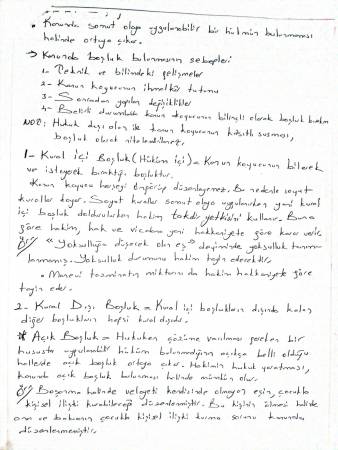 • Kanunda somut olaya uygulanabilir bir hükmün bulunmaması
halinde ortaya çıkar.
→ Kanunda boşluk bulunmasının sebepleri
1- Teknik ve bilimdeki gelişmeler
2- Kanun koyucunun ihmalkâr tutumu
3- Sonradan yapılan değişiklikler
4- Belirli durumlarda kanun koyucunun bilinçli olarak boşluk bırakm
NOT: Hukuk dışı alan ile kanun koyucunun kasıtlı susması,
boşluk olarak nitelendirilmez.
1- Kural İçi Boşluk (Hüküm içi) = Kanun koyucunun bilerek
ve isteyerek bıraktığı boşluktur.
Kanun koyucu herşeyi öngörüp düzenleyemez. Bu nedenle soyut
kurallar koyar. Soyut kurallar somut olaya uygulanırken yani kural
içi boşluk doldurulurken hakim takdir yetkisini kullanır. Buna
göre hakim, hak ve vicdana yani hakkaniyete göre karar verir.
Ör/ "Yoksulluğa düşecek olan eş" deyiminde yoksulluk tanım-
lanmamış. Yoksulluk durumunu hakim tayin edecektir.
• Manevi tazminatın miktarını da hakim hakkaniyete göre
tayin eder.
2- Kural Dışı Boşluk = Kural içi boşlukların dışında kalan
diğer boşlukların hepsi kural dışıdır.
* Açık Boşluk = Hukuken çözüme varılması gereken bir
hususta uygulanabilir hüküm bulunmadığının açıkça belli olduğu
hallerde açık boşluk ortaya çıkar. Hakimin hukuk yaratması,
kanunda açık boşluk bulunması halinde mümkün olur.
Ör/ Boşanma halinde velayeti kendisinde olmayan eşin, çocukla
kişisel ilişki kurabileceği düzenlenmiştir. Bu kişinin ölmesi halinde
ana ve babanın çocukla kişisel ilişki kurma sorunu kanunda
düzenlenmemiştir.